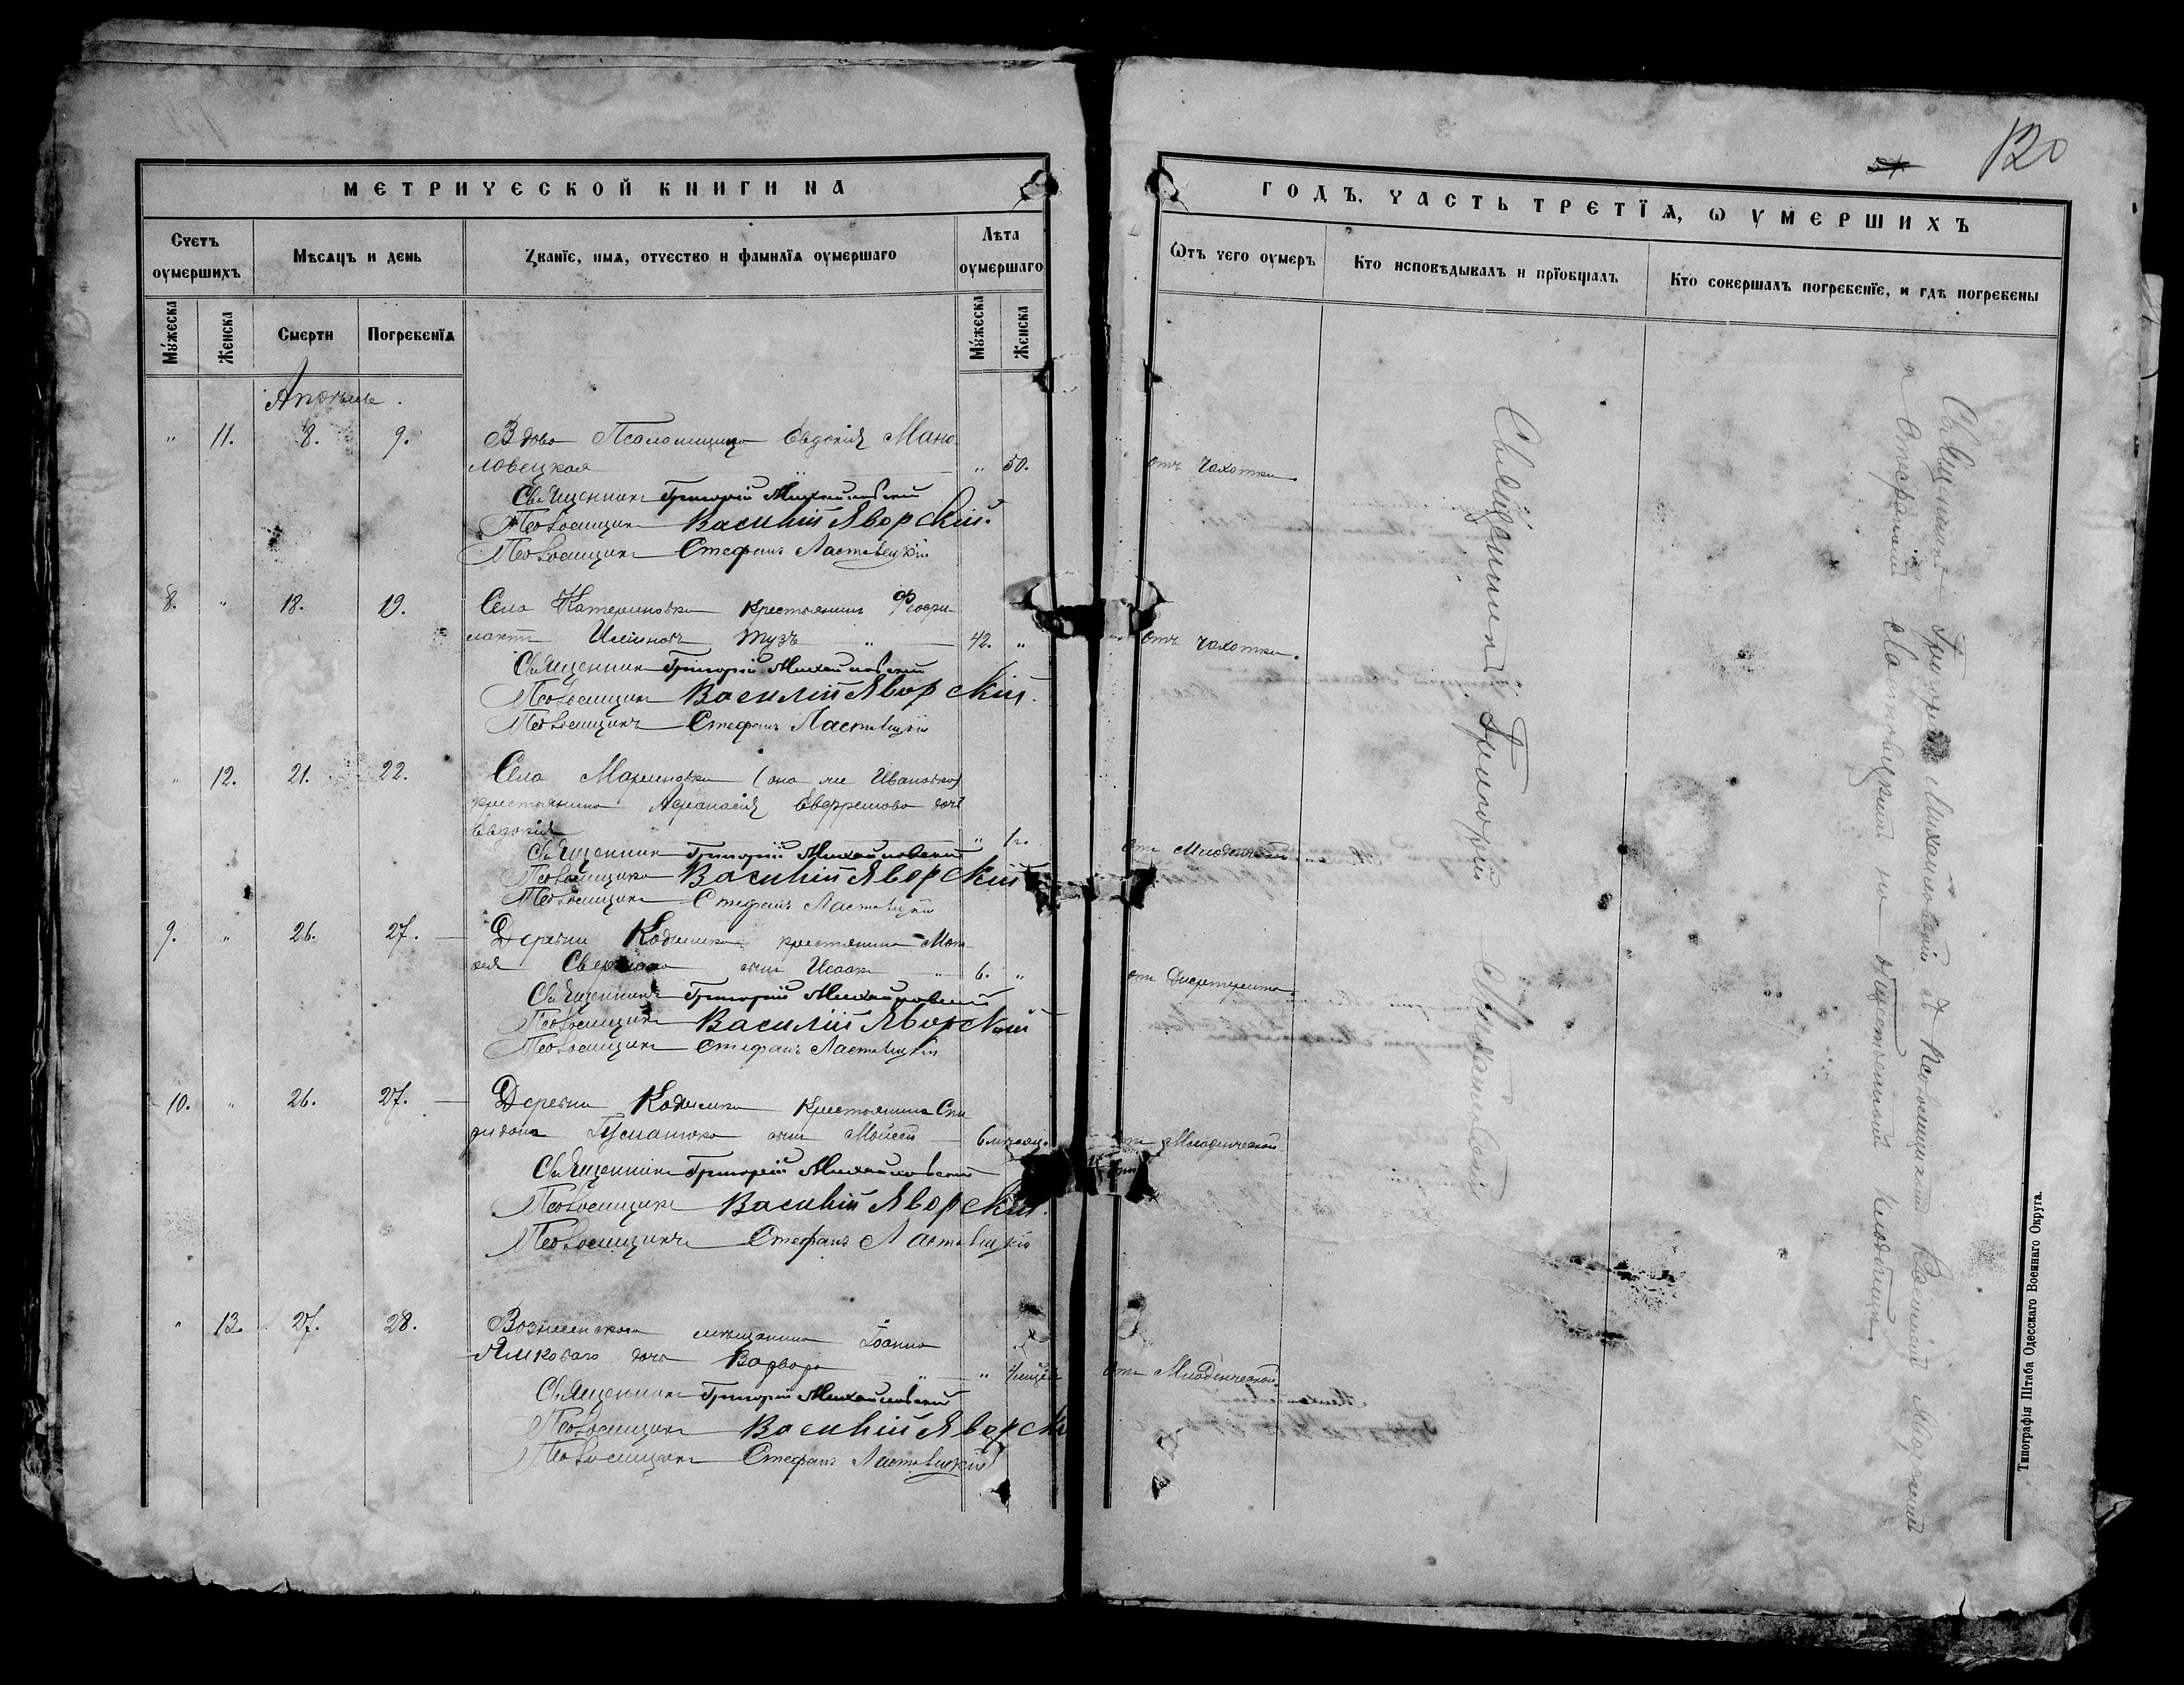 120
МЕТРИЧЕСКОЙ КНИГИ НА
ГОДЪ, ЧАСТЬ ТРЕТІѦ, Ѡ УМЕРШИХЪ
Счетъ оумершихъ
Мѣсѧцъ и день
Званіе, имѧ, отчество и фамиліѧ оумершаго
Лѣта оумершаго
Ѿтъ чего оумеръ
Кто исповѣдывалъ и пріобщалъ
Кто совершалъ погребеніе, и гдѣ погребены
Мужеска
Женска
Смерти
Погребеніѧ
Мужеска
Женска
Апрѣль.
" 11. 8. 9. Вдова Псаломщица Евдокія Мано-
ловецкая " 50. отъ чахотки.
Священникъ Григорій Михайловскій
Псаломщикъ Василій Яворскій.
Псаломщикъ Стефанъ Ластовецкій
8. " 18. 19. Села Катериновки крестьянинъ Феофи-
лактъ Тузъ " 42. " отъ чахотки.
Священникъ Григорій Михайловскій
Псаломщикъ Василій Яворскій.
Псаломщикъ Стефанъ Ластовецкій
" 12. 21. 22. Села Мариновки (она же Ивановка)
крестьянина Афанасія Евфремова дочь
Евдокія " 1г. отъ Младенческой.
Священникъ Григорій Михайловскій
Псаломщикъ Василій Яворскій
Псаломщикъ Стефанъ Ластовецкій
9. " 26. 27. Деревни крестьянина
сынъ Исаакъ " 6. " отъ Дифтерита.
Священникъ Григорій Михайловскій
Псаломщикъ Василій Яворскій
Псаломщикъ Стефанъ Ластовецкій
10. " 26. 27. Деревни крестьянина Спи-
ридона сынъ Моисей 6 мѣсяц. отъ Младенческой
Священникъ Григорій Михайловскій
Псаломщикъ Василій Яворскій.
Псаломщикъ Стефанъ Ластовецкій
" 13. 27. 28. Вознесенскаго мѣщанина Іоанна
дочь Варвара " отъ Младенческой.
Священникъ Григорій Михайловскій
Псаломщикъ Василій Яворск
Псаломщикъ Стефанъ Ластовецкій
Священникъ Григорій Михайловскій
Священникъ Григорій Михайловскій съ Псаломщиками Василіемъ Яворскимъ
и Стефаномъ Ластовецкимъ на общественномъ кладбищѣ.
Типографія Штаба Одесскаго Военнаго Округа.